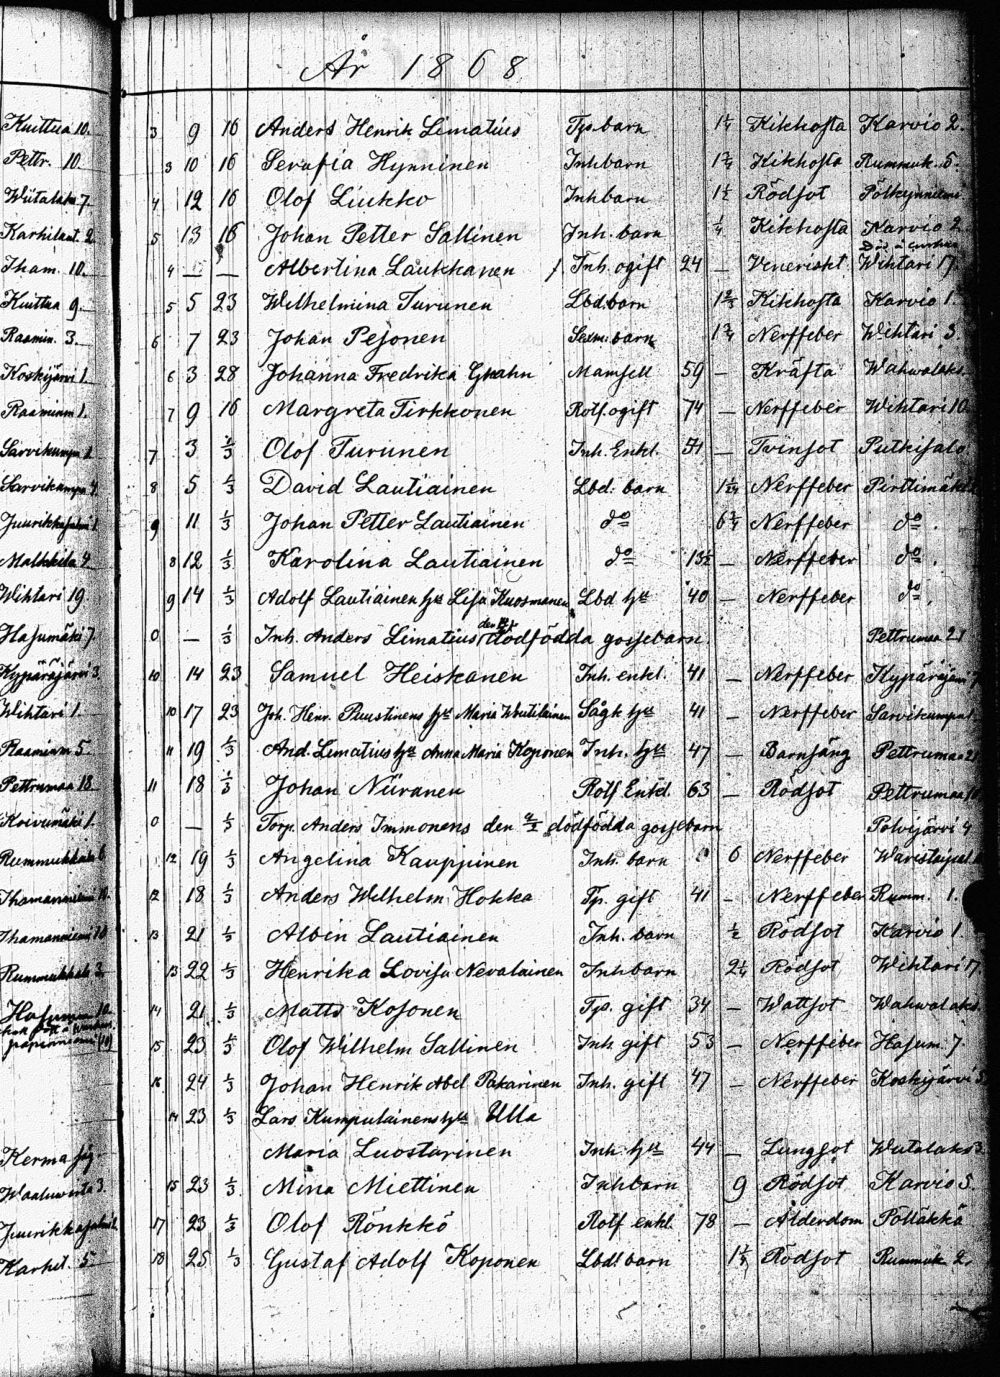 År 1868
Kuittua 10. 3 9 16 Anders Henrik Limatius Tp. barn Kikhosta Karvio 2.
Pettr. 10. 3 10 16 Serafia Hynninen Inh barn Kikhosta Rummuk. 5.
Wiitalaks 7. 4 12 16 Olof Liukko Inh barn Rödsot
Karhilaat. 2. 5 13 16 Johan Petter Sallinen Inh. barn 1/4 Kikhosta Karvio 2.
Tham. 10. 4 — — Albertina Laukkanen Inh. ogift 24 — Veneriskt Wihtari 17.
Kuittua 9. 5 5 23 Wilhelmina Turunen Lbd. barn Kikhosta Karvio 1.
Raamin. 3. 6 7 23 Johan Pejonen barn Nerffeber Wihtari 3.
Koskijärvi 1. 6 3 28 Johanna Fredrika Mamsell 59 — Kräfta Wahwalaks.
Raaminm 1. 7 9 16 Margreta Tirkkonen Rotf. ogift 74 — Nerffeber Wihtari 10.
Sarvikumpu 1. 7 3 1/3 Olof Turunen Inh. Enkl. 51 — Tvinsot Putkisalo
Sarvikumpu 4. 8 5 1/3 David Lautiainen Lbd. barn Nerffeber Pirttimäki
Juurikkasalmi 1. 9 11 1/3 Johan Petter Lautiainen do 6 Nerffeber do.
Malkkila 4. 8 12 1/3 Karolina Lautiainen do 13 1/2 — Nerffeber do.
Wihtari 19. 9 14 1/3 Adolf Lautiainen hu Lisa Kuosmanen Lbd hu 40 — Nerffeber do.
Hasumäki 7. 0 — 1/3 Inh. Anders Limatius den dödfödda gossebarn Pettrumaa 21
Kypäräjärvi 3. 10 14 23 Samuel Heiskanen Inh. enkl. 41 — Nerffeber Kypäräjärvi
Wihtari 1. 10 17 23 Joh. Henr. Puustinens hu Maria Woutilainen Sågk hu 41 — Nerffeber Sarvikumpu
Raaminm 5. 11 19 1/3 And. Limatius hu Anna Maria Koponen Inh. hu 47 — Barnsäng Pettrumaa 21
Pettrumaa 18. 11 18 1/3 Johan Niiranen Rotf Enkl. 63 — Rödsot Pettrumaa
Koivumäki 1. 0 — 1/3 Torp. Anders Immonens den dödfödda gossebarn Polvijärvi 4
Rummukkala 6 12 19 1/3 Angelina Kauppinen Inh. barn 6 Nerffeber
Thamanniemi 10. 12 18 1/3 Anders Wilhelm Hokka Tp. gift 41 — Nerffeber Rumm. 1.
Thamanniemi 10 13 21 1/3 Albin Lautiainen Inh. barn 1/2 Rödsot Karvio 1.
Rummukkala 3. 13 22 1/3 Henrika Lovisa Nevalainen Inh barn 2 1/4 Rödsot Wihtari 17.
Hasumaa 10. 14 21 1/3 Matts Kosonen Tp. gift 34 — Wattsot Wahwalaks.
15 23 1/3 Olof Wilhelm Sallinen Inh gift 53 — Nerffeber Hasum. 7.
16 24 1/3 Johan Henrik Abel Pakarinen Inh. gift 47 — Nerffeber Koskijärvi
14 23 1/3 Lars Kumpulainens hu Ulla
Kerma Maria Luostarinen Inh hu 44 — Lungsot Wiitalaks 3.
Waaluwirta 3. 15 23 1/3 Mina Miettinen Inh barn 9 Rödsot Karvio 5.
Juurikkasalmi 17 23 1/3 Olof Rönkkö Rotf enkl. 78 — Ålderdom Pölläkkä
Karhil. 5 18 25 1/3 Gustaf Adolf Koponen Lbd. barn Rödsot Rummuk 2.